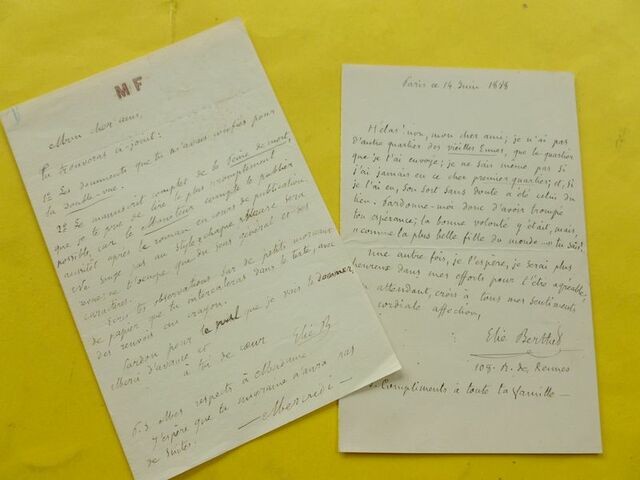 MF
Mon cher ami,
Tu trouveras ci-joint:
1º Les documents que tu m'avais confiés pour
la double-vue.
2º Le manuscrit complet de la Peine de mort,
que je te prie de lire le plus promptement
possible, car le Moniteur compte le publier
aussitôt après le roman en cours de publication
Ne juge pas au style; chaque phrase sera
revue; ne t'occupe que du sens général et des
caractères.
Ecris tes observations sur de petits morceaux
de papier que tu intercaleras dans le texte, avec
des renvois au crayon.
Pardon pour le mal que je vais te donner
Merci d'avance et
à toi de cœur
Elie B
P.S Mes respects à Madame
J'espère que ta migraine n'aura pas
de suites.
— Mercredi —
Paris ce 14 Juin 1878
Hélas! non, mon cher ami; je n'ai pas
d'autre quartier des vieilles Ennes, que le quartier
que je t'ai envoyé; je ne sais même pas si
j'ai jamais eu ce cher premier quartier; et, si
je l'ai eu, son sort sans doute a été celui du
lien. Pardonne-moi donc d'avoir trompé
ton espérance; la bonne volonté y était, mais,
"comme la plus belle fille du monde" tu sais!
Une autre fois, je l'espère, je serai plus
heureux dans mes efforts pour t'être agréable.
En attendant, crois à tous mes sentiments
de cordiale affection,
Elie Berthet
109. R. de Rennes
Compliments à toute ta famille —